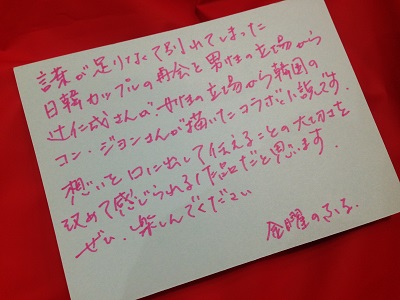 言葉が足りなくて別れてしまった
日韓カップルの再会を男性の立場から
辻仁成さんが、女性の立場から韓国の
コン・ジヨンさんが描いたコラボ小説です。
想いを口に出して伝えることの大切さを
改めて感じられる作品だと思います。
ぜひ、楽しんでください
金曜のふる